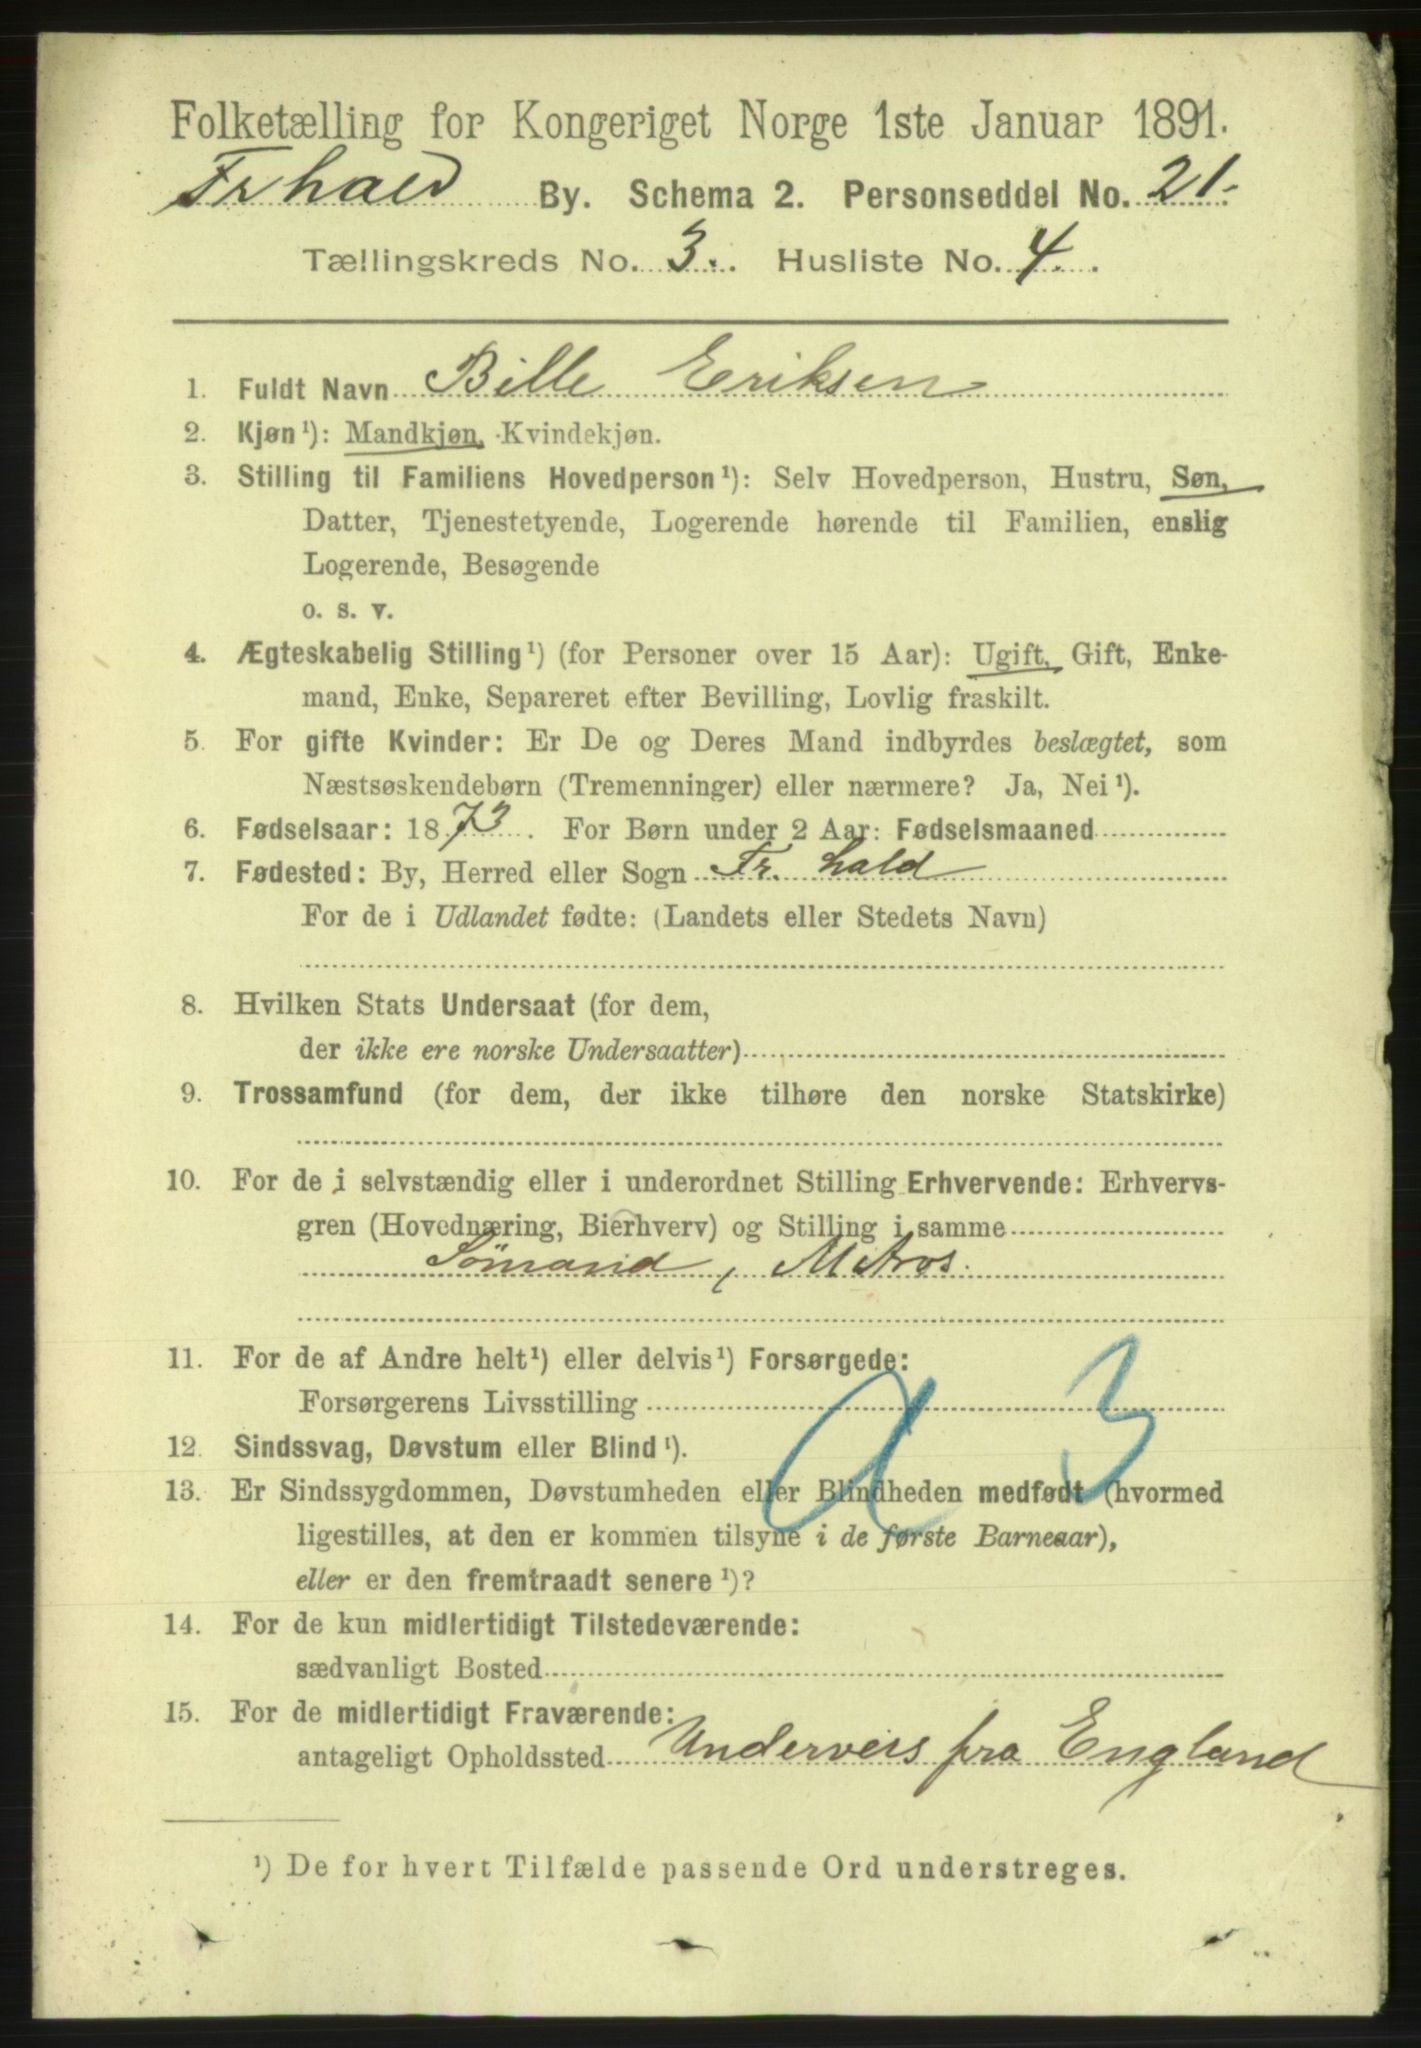 Folketælling for Kongeriget Norge 1ste Januar 1891.
Frhald By. Schema 2. Personseddel No. 21.
Tællingskreds No. 3. Husliste No. 4.
1. Fuldt Navn Bille Eriksen
2. Kjøn¹): Mandkjøn, Kvindekjøn.
3. Stilling til Familiens Hovedperson¹): Selv Hovedperson, Hustru, Søn,
Datter, Tjenestetyende, Logerende hørende til Familien, enslig
Logerende, Besøgende
o. s. v.
4. Ægteskabelig Stilling¹) (for Personer over 15 Aar): Ugift, Gift, Enke-
mand, Enke, Separeret efter Bevilling, Lovlig fraskilt.
5. For gifte Kvinder: Er De og Deres Mand indbyrdes beslægtet, som
Næstsøskendebørn (Tremenninger) eller nærmere? Ja, Nei¹).
6. Fødselsaar: 1873. For Børn under 2 Aar: Fødselsmaaned
7. Fødested: By, Herred eller Sogn Fr. hald
For de i Udlandet fødte: (Landets eller Stedets Navn)
8. Hvilken Stats Undersaat (for dem,
der ikke ere norske Undersaatter)
9. Trossamfund (for dem, der ikke tilhøre den norske Statskirke)
10. For de i selvstændig eller i underordnet Stilling Erhvervende: Erhvervs-
gren (Hovednæring, Bierhverv) og Stilling i samme
Sömand, Matros.
11. For de af Andre helt¹) eller delvis¹) Forsørgede:
Forsørgerens Livsstilling
a 3
12. Sindssvag, Døvstum eller Blind¹).
13. Er Sindssygdommen, Døvstumheden eller Blindheden medfødt (hvormed
ligestilles, at den er kommen tilsyne i de første Barneaar),
eller er den fremtraadt senere¹)?
14. For de kun midlertidigt Tilstedeværende:
sædvanligt Bosted
15. For de midlertidigt Fraværende:
antageligt Opholdssted Underveis fra England
¹) De for hvert Tilfælde passende Ord understreges.